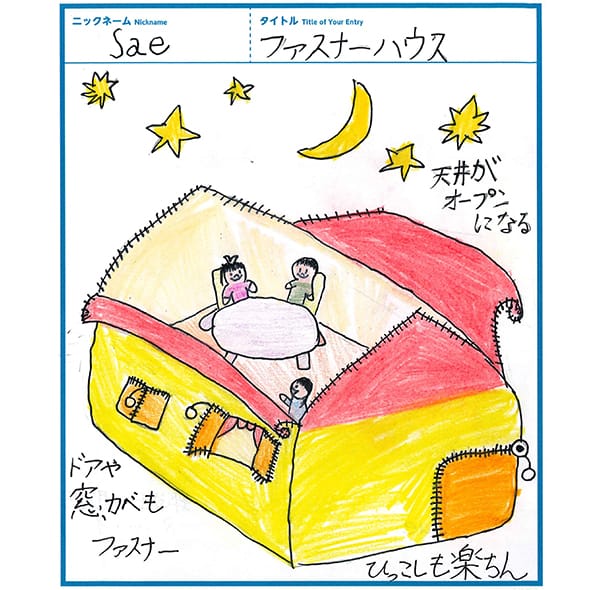 ニックネーム Nickname
Sae
タイトル Title of Your Entry
ファスナーハウス
天井が
オープン
になる
ドアや
窓、カベも
ファスナー
ひっこしも楽ちん